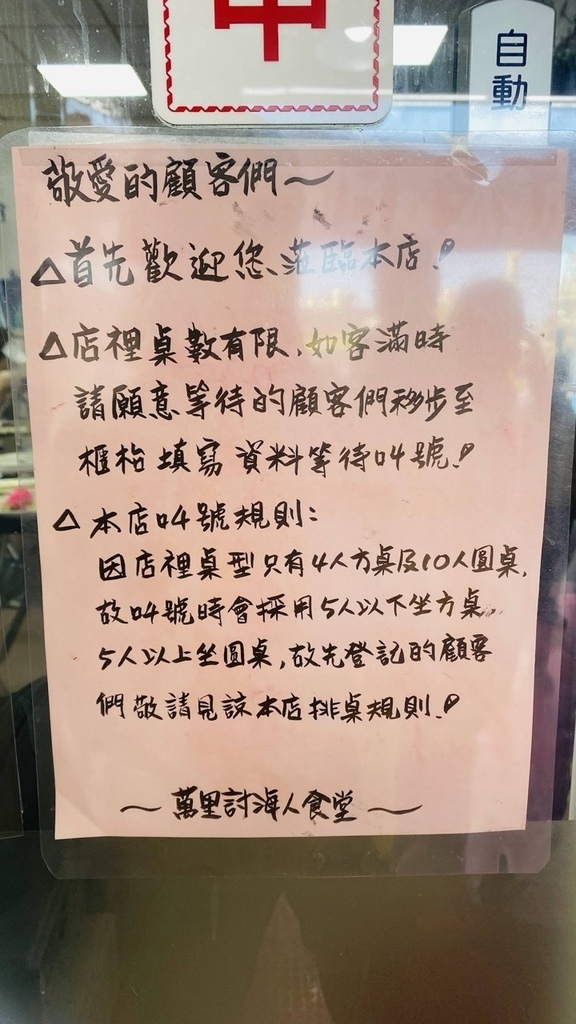 中
自動
敬愛的顧客們~
△首先歡迎您、蒞臨本店!
△店裡桌數有限,如客滿時
請願意等待的顧客們移步至
櫃枱填寫資料等待叫號!
△本店叫號規則:
因店裡桌型只有4人方桌及10人圓桌,
故叫號時會採用5人以下坐方桌,
5人以上坐圓桌,故先登記的顧客
們敬請見諒本店排桌規則!
~萬里討海人食堂~